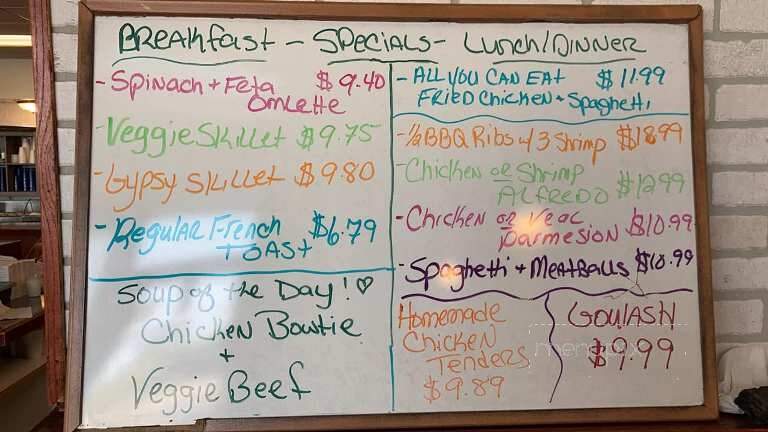 Breakfast - Specials - Lunch/Dinner
- Spinach + Feta $9.40
Omlette
- Veggie Skillet $9.75
- Gypsy Skillet $9.80
- Regular French $6.79
Toast
Soup of the Day! ♡
Chicken Bowtie
+
Veggie Beef
- All you can eat $11.99
Fried Chicken + Spaghetti
- 1/2 BBQ Ribs w/ 3 Shrimp $18.99
- Chicken or Shrimp
Alfredo $12.99
- Chicken or Veal $10.99
Parmesion
- Spaghetti + Meatballs $10.99
Homemade
Chicken
Tenders
$9.89
Goulash
$9.99
menupix